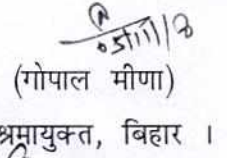 (गोपाल मीणा)
श्रमायुक्त, बिहार ।